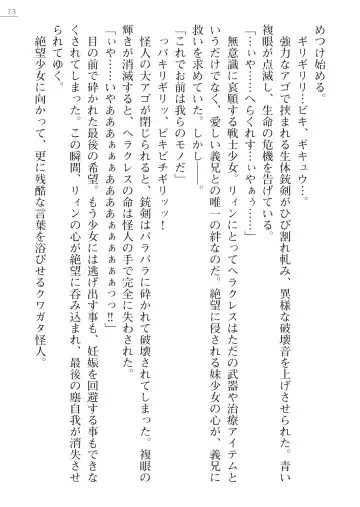 73
めつけ始める。
ギリギリリ…ビキ、ギキュウ…。
強力なアゴで挟まれる生体銃剣がひび割れ軋み、異様な破壊音を上げさせられた。青い
複眼が点滅し、生命の危機を告げている。
「…いや……へらくれす…いやぁぅ……」
無意識に哀願する戦士少女。リィンにとってヘラクレスはただの武器や治療アイテムと
いうだけでなく、愛しい義兄との唯一の絆なのだ。絶望に侵される妹少女の心が、義兄に
救いを求めていた。しかし――
「これでお前は我らのモノだ」
っバキリギリッ、ビキビチギリッッ！
怪人の大アゴが閉じられると、銃剣はバラバラに砕かれて破壊されてしまった。複眼の
輝きが消滅すると、ヘラクレスの命は怪人の手で完全に失わされた。
「ぃや……いやあああぁぁぁぁぁぁっっっ‼
目の前で砕かれた最後の希望。もう少女には逃げ出す事も、妊娠を回避する事もできな
くされてしまった。この瞬間、リィンの心が絶望に呑み込まれ、最後の塵自我が消失させ
られてゆく。
絶望少女に向かって、更に残酷な言葉を浴びせるクワガタ怪人。